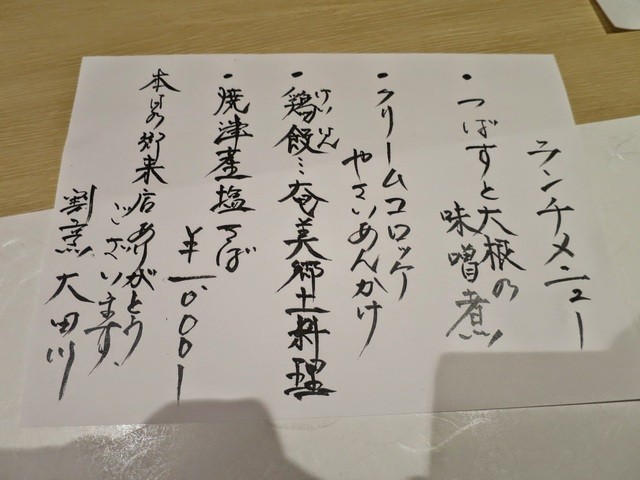 ランチメニュー
・つばすと大根の
味噌煮
・クリームコロッケ
やさいあんかけ
・鶏飯…奄美郷土料理
けいはん
・焼津産塩さば
￥1,000-
本日の御来店ありがとう
ございます。
割烹 大田川